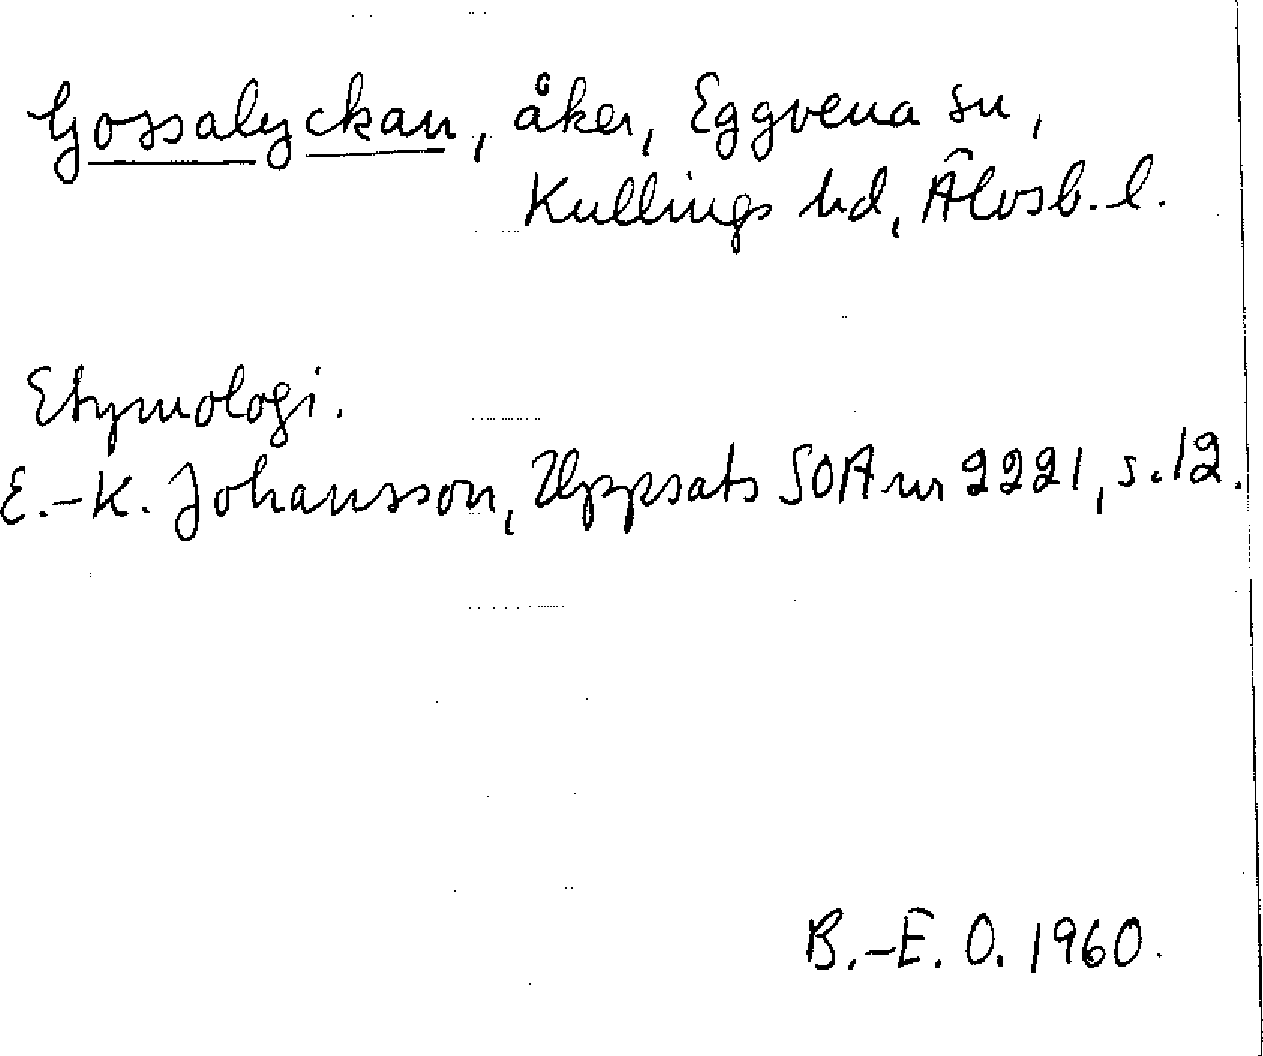 Gossalyckan, åker, Eggvena sn,
Kullings hd, Älvsb. l.
Etymologi.
E.-K. Johansson, Uppsats SOA nr 2221, s. 12.
B.-E. O. 1960.